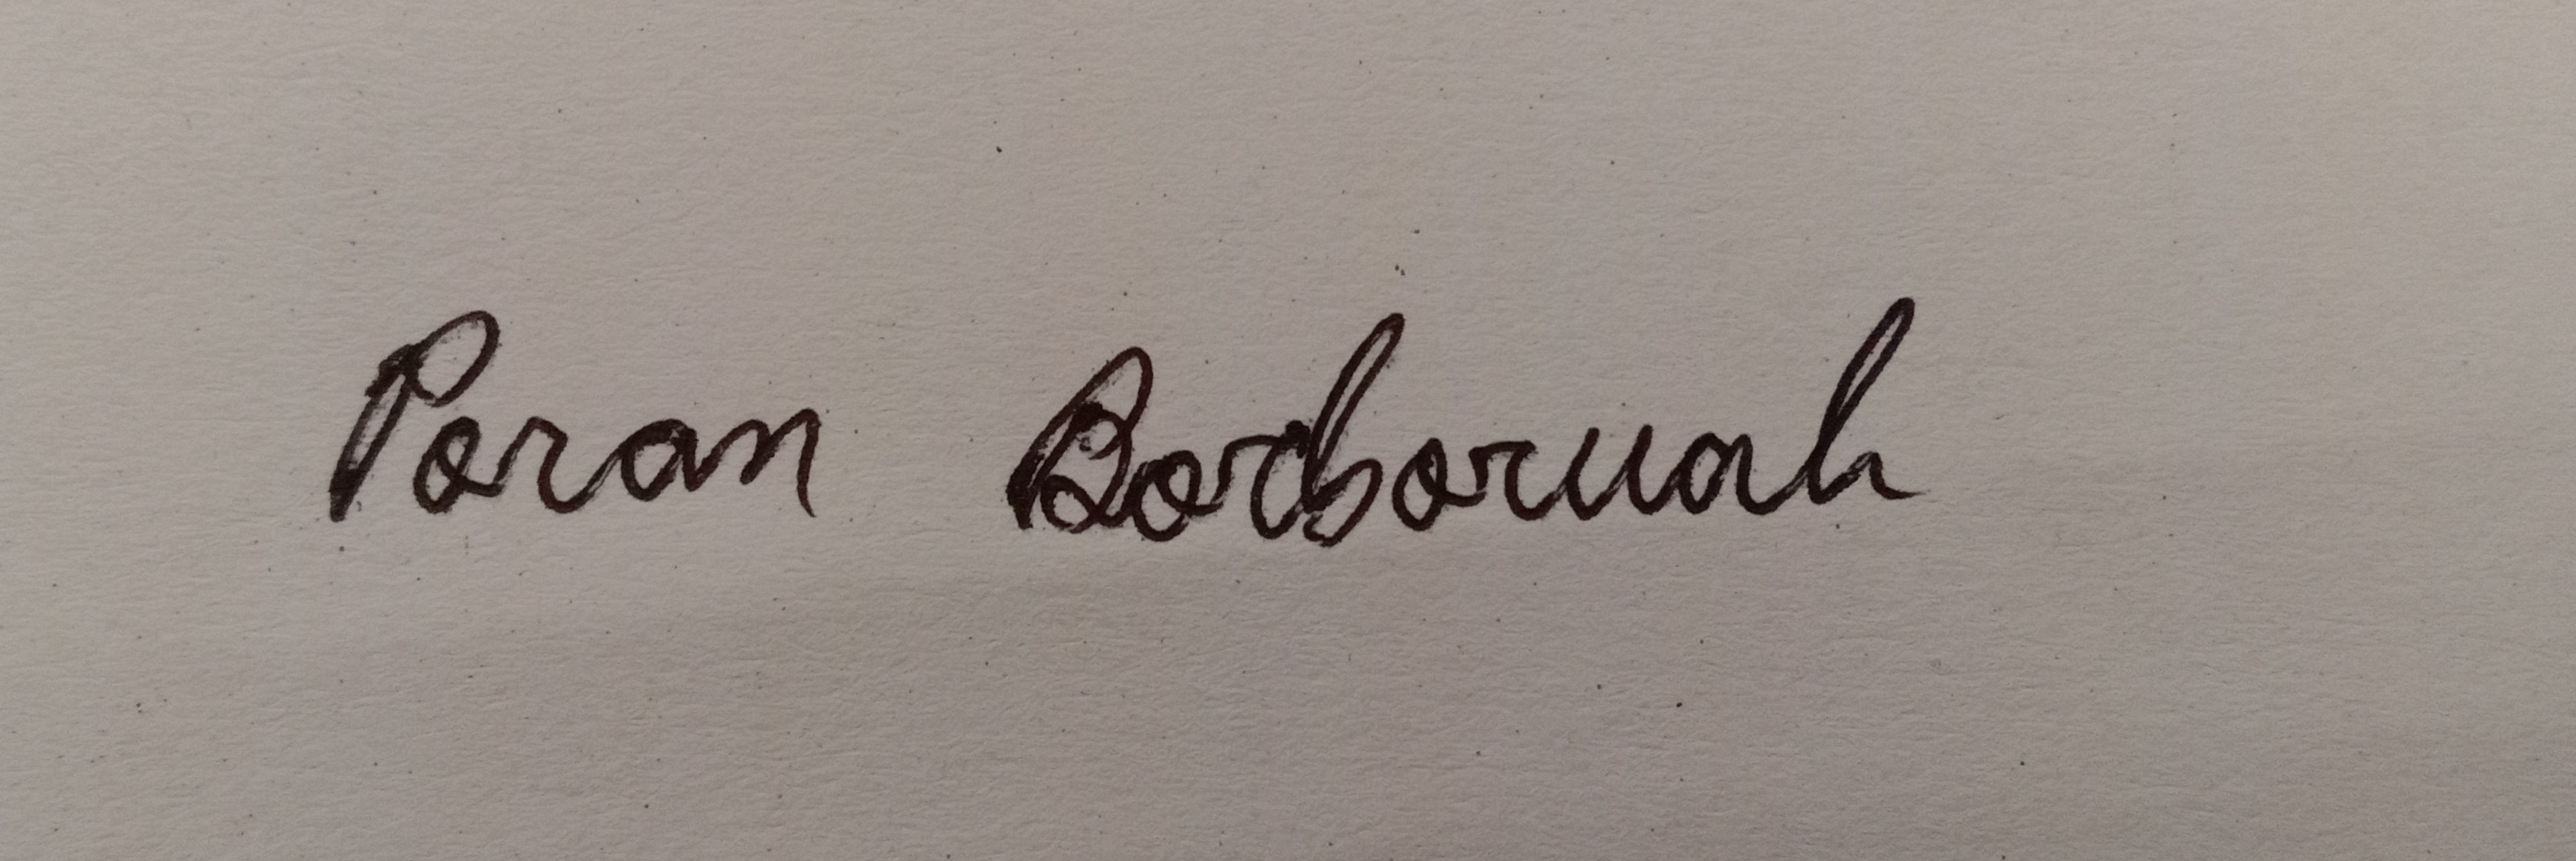 Poran Borboruah